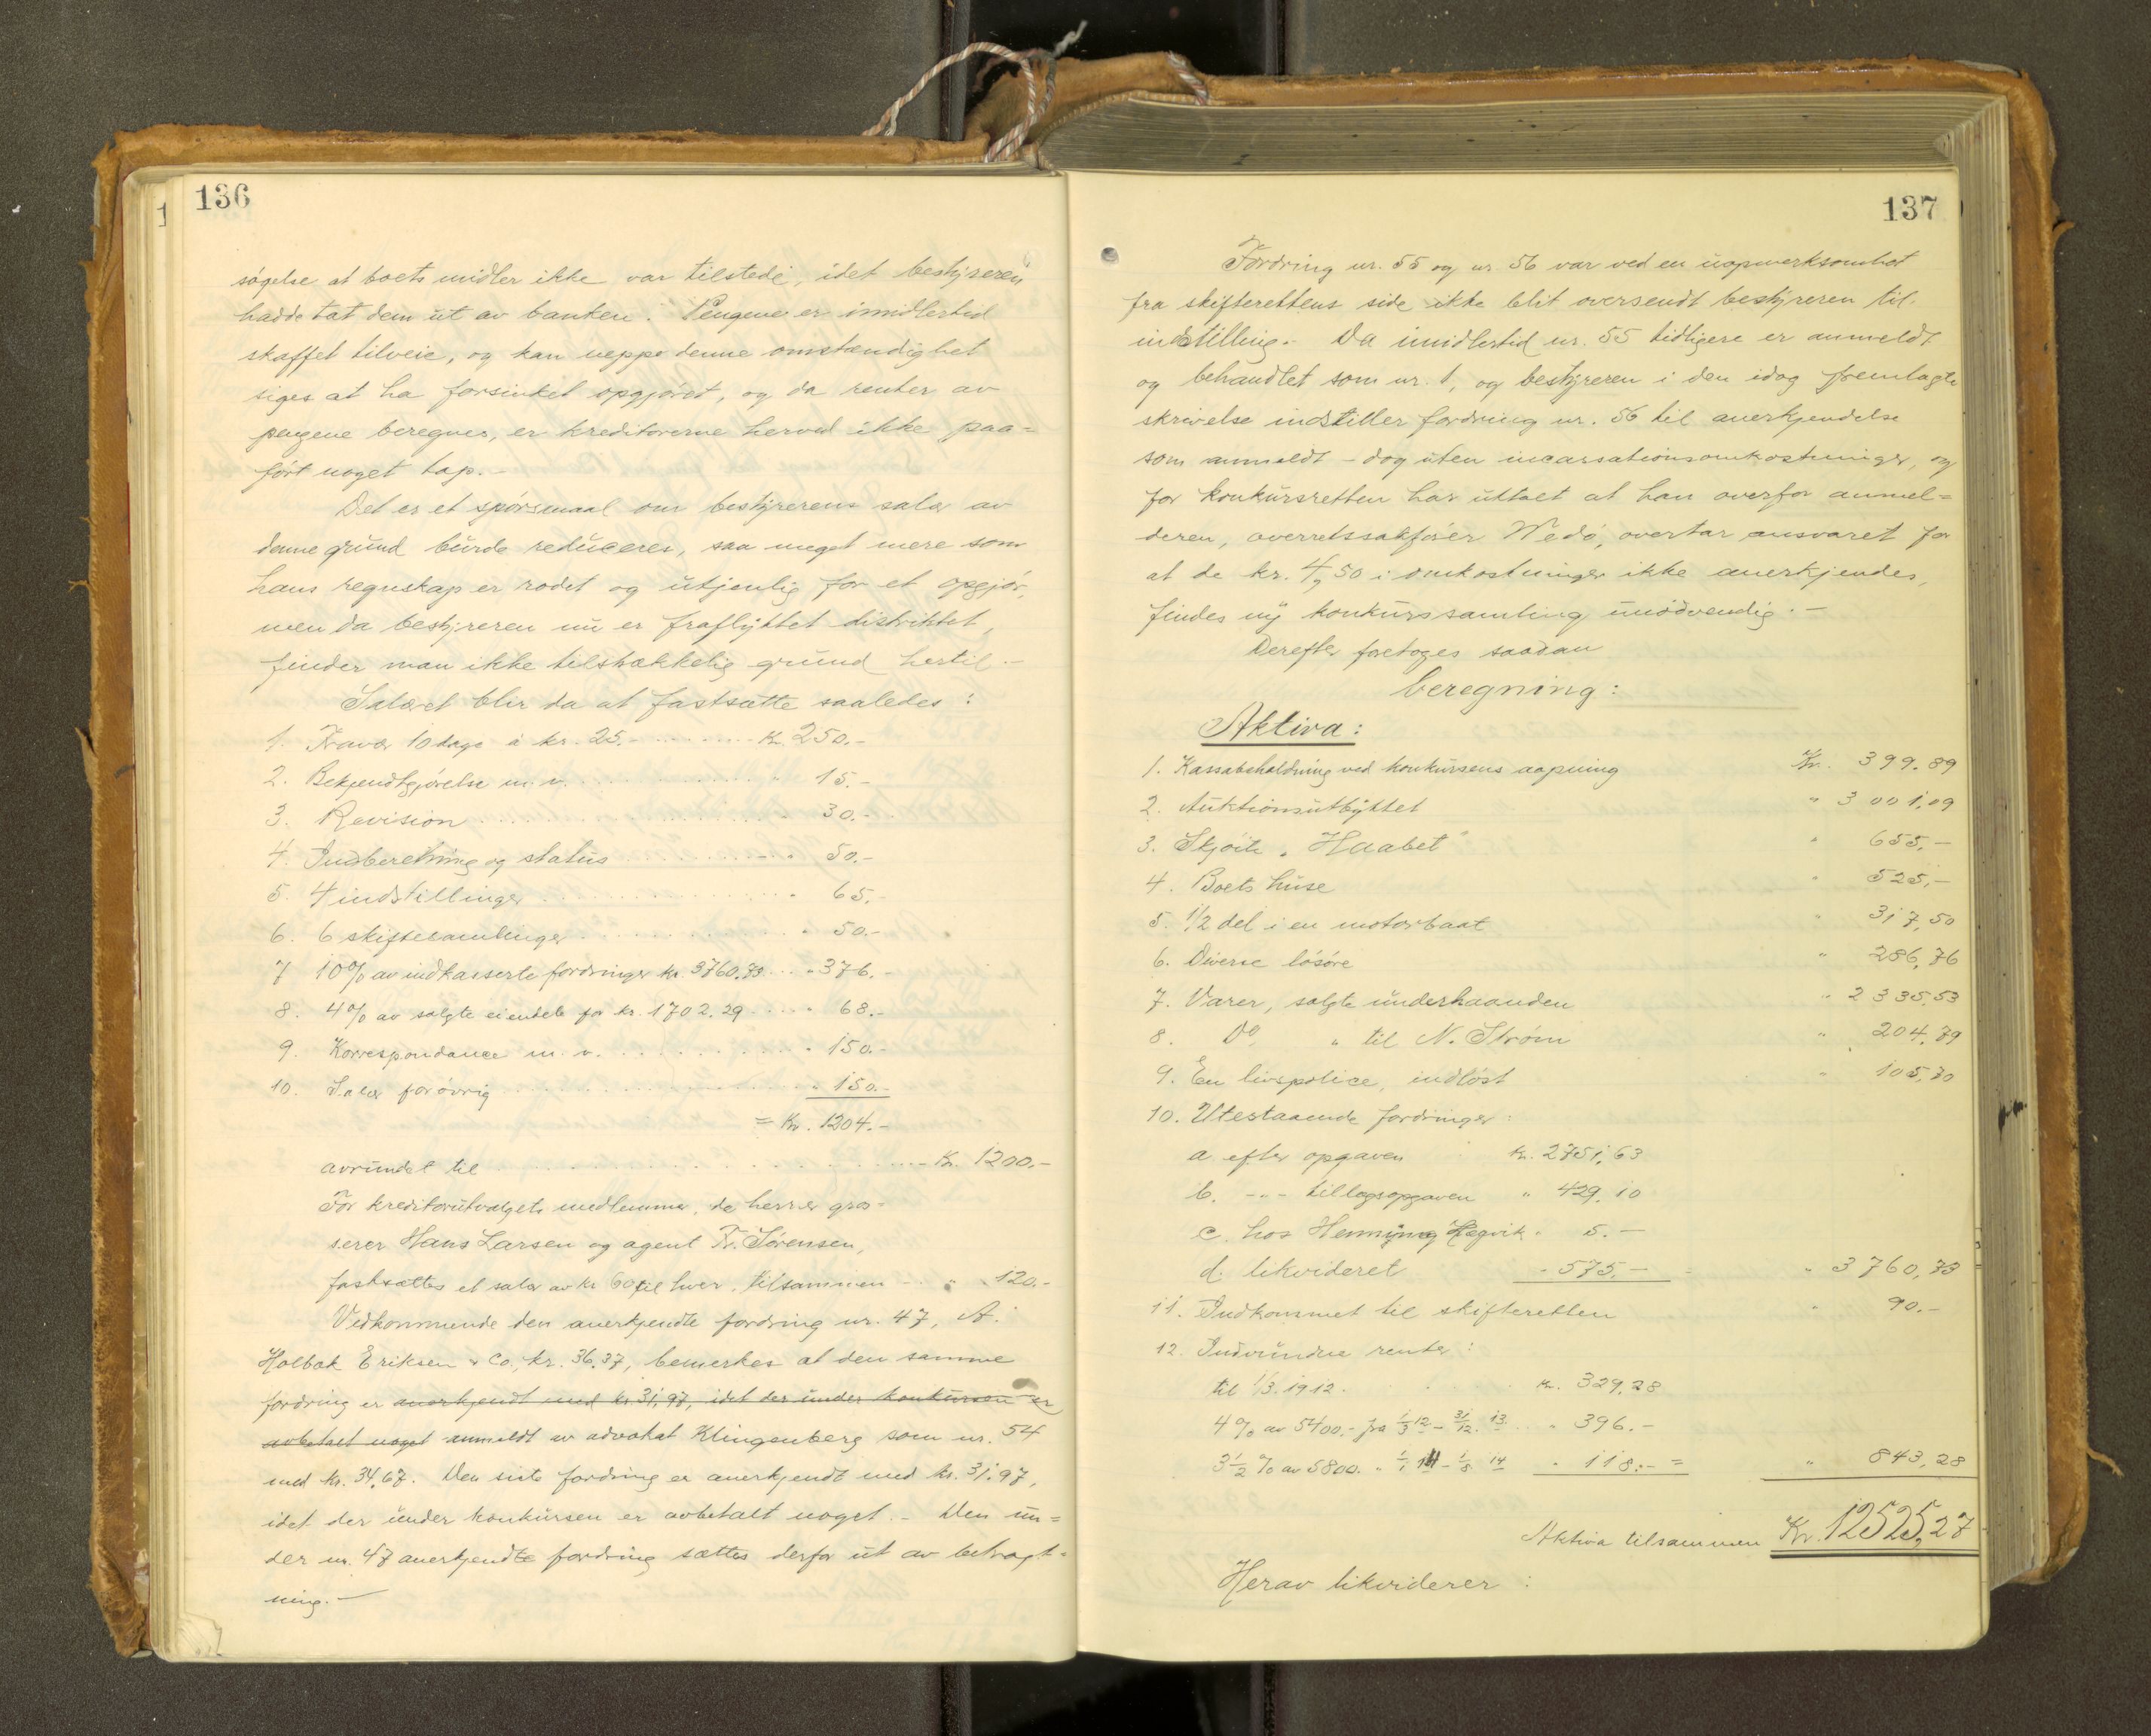 136
søgelse at boets midler ikke var tilstede, idet bestyreren
hadde tat dem ut av banken. Pengene er imidlertid
skaffet tilveie, og kan neppe denne omstændighet
siges at ha forsinket opgjøret, og da renter av
pengene beregnes, er kreditorerne herved ikke paa=
ført noget tap.-
Det er et spørsmaal om bestyrerens salær av
denne grund burde reduceres, saa meget mere som
hans regnskap er rodet og utjenlig for et opgjør,
men da bestyreren nu er fraflyttet distriktet,
finder man ikke tilstrækkelig grund hertil.-
Salæret blir da at fastsætte saaledes:
1. Fravær 10 dage à kr. 25.- Kr. 250.-
2. Bekjendtgjørelse m. v. " 15.-
3. Revision " 30.-
4. Indberetning og status " 50.-
5. 4 indstillinger " 65.-
6. 6 skiftesamlinger " 50.-
7 10% av indkasserte fordringer kr. 3760.73 " 376.-
8. 4% av solgte eiendele for kr. 1702.29 " 68.-
9. Korrespondance m. v. " 150.-
10. Salær forøvrig " 150.-
= Kr. 1204.-
avrundet til Kr. 1200.-
For kreditorutvalgets medlemmer, de herrer gros=
serer Hans Larsen og agent Fr. Sørensen,
fastsættes et salær av kr 60 til hver, tilsammen " 120.-
Vedkommende den anerkjendte fordring nr. 47, A.
Holbæk Eriksen & Co., kr. 36.37, bemerkes at den samme
fordring er anerkjendt med kr. 31,97, idet der under konkursen er
avbetalt noget anmeldt av advokat Klingenberg som nr. 54
med kr. 34.67. Den siste fordring er anerkjendt med kr. 31.97,
idet der under konkursen er avbetalt noget.- Den un=
der nr. 47 anerkjendte fordring sættes derfor ut av betragt=
ning.-
137
Fordring nr. 55 og nr. 56 var ved en uopmerksomhet
fra skifterettens side ikke blit oversendt bestyreren til
indstilling.- Da imidlertid nr. 55 tidligere er anmeldt
og behandlet som nr. 1, og bestyreren i den idag fremlagte
skrivelse indstiller fordring nr. 56 til anerkjendelse
som anmeldt - dog uten incassationsomkostninger, og
for konkursretten har uttalt at han overfor anmel=
deren, overretssakfører Wedø, overtar ansvaret for
at de kr. 4,50 i omkostninger ikke anerkjendes,
findes ny konkurssamling unødvendig.-
Derefter foretoges saadan
beregning:
Aktiva:
1. Kassabeholdning ved konkursens aapning Kr. 399.89
2. Auktionsutbyttet " 3001.09
3. Skjøite "Haabet" " 655,-
4. Boets huse " 525,-
5. 1/2 del i en motorbaat " 317,50
6. Diverse løsøre " 286,76
7. Varer, solgte underhaanden " 2335.53
8. Do " til N. Strøm " 204,79
9. En livspolice, indløst " 105,70
10. Utestaaende fordringer:
a. efter opgaven kr. 2751,63
b. -"- tillægsopgaven " 429.10
c. hos Henning Hegvik " 5.-
d. likvideret " 575.- " 3760,73
11. Indkommet til skifteretten " 90.-
12. Indvundne renter:
til 1/3. 1912. kr. 329,28
4% av 5400,- fra 1/3 12 - 31/12. 13. " 396.-
3 1/2 % av 5800. " 1/1 14 - 1/8 14 " 118.- = " 843,28
Aktiva tilsammen Kr. 12525,27
Herav likviderer: